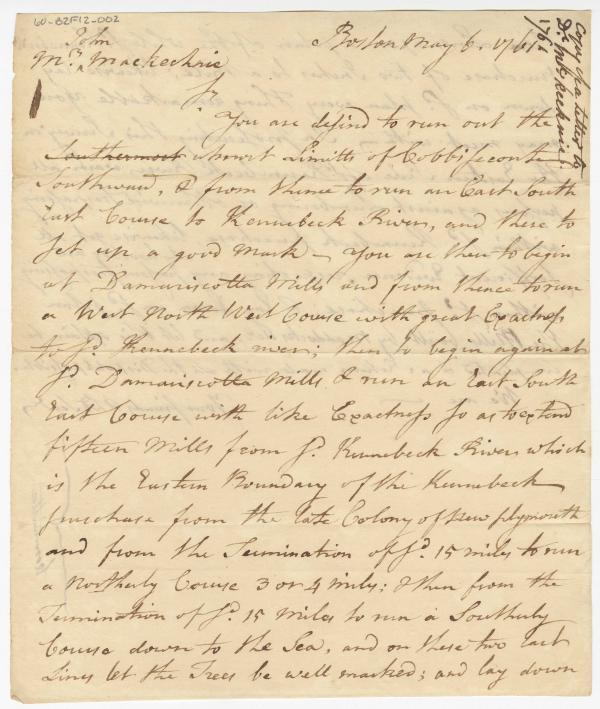 60-B2F12-002
Copy of a Letter to
Dr. McKechnie.
1761
Boston May 6. 1761
John
Mr. Mackechnie
Sr.
You are desired to run out the
Southermost utmost Limitts of Cobbiseconte
Southward, & from thence to run an East South
East Course to Kennebeck River, and there to
set up a good mark — You are then to begin
at Damariscotta Mills and from thence to run
a West North West Course with great Exactness
to sd. Kennebeck river; then to begin again at
sd. Damariscotta Mills & run an East South
East Course with like Exactness so as to extend
fifteen Mills from sd. Kennebeck River which
is the Eastern Boundary of the Kennebeck
purchase from the late Colony of New plymouth
and from the Termination of sd. 15 miles to run
a Northerly Course 3 or 4 miles; & then from the
Termination of sd. 15 Miles to run a Southerly
Course down to the Sea, and on these two last
Lines let the Trees be well marked; and lay down